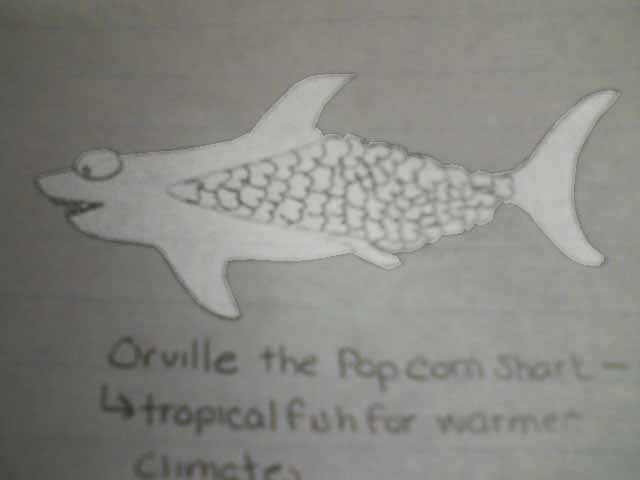 Orville the Popcorn Shark –
↳ tropical fish for warmer
climates